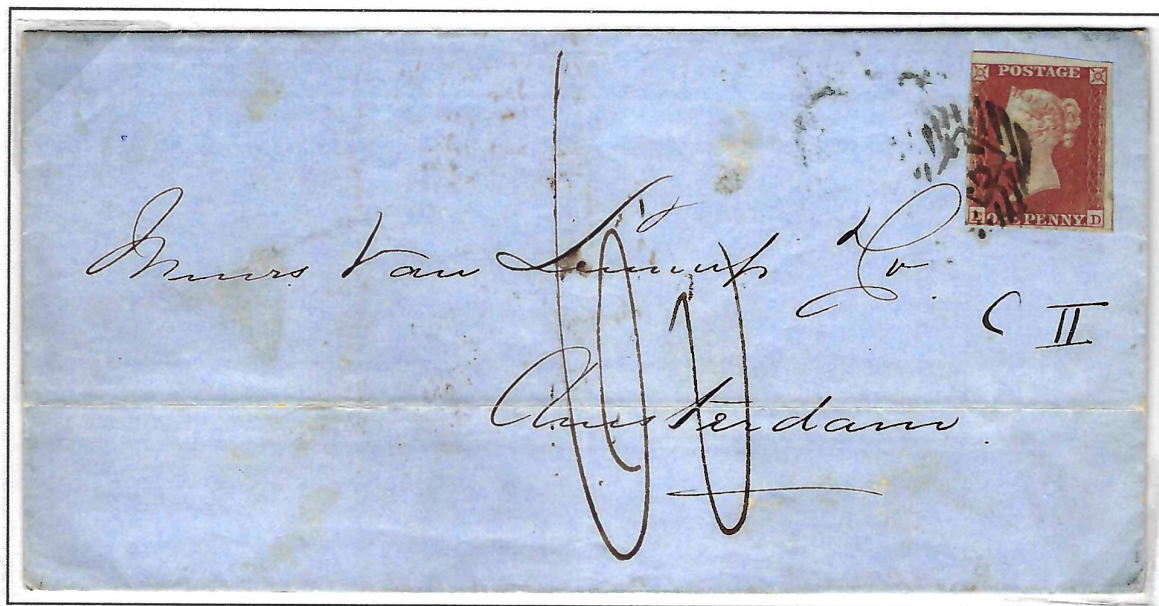 POSTAGE
ONE PENNY D
Messrs Van Lennep & Co
C II
Amsterdam
60